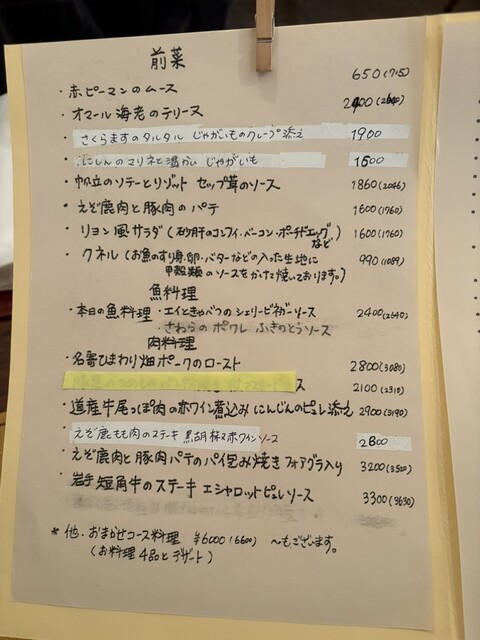 前菜
・赤ピーマンのムース 650(715)
・オマール海老のテリーヌ 2400(2640)
・さくらますのタルタル じゃがいものクレープ添え 1900
・にしんのマリネと温かいじゃがいも 1600
・帆立のソテーとリゾット セップ茸のソース 1860(2046)
・えぞ鹿肉と豚肉のパテ 1600(1760)
・リヨン風サラダ(砂肝のコンフィ・ベーコン・ポーチドエッグなど) 1600(1760)
・クネル(お魚のすり身・卵・バターなどの入った生地に 990(1089)
甲殻類のソースをかけて焼いております。)
魚料理
・本日の魚料理・エイときゃべつのシェリービネガーソース 2400(2640)
・さわらのポワレ ふきのとうソース
肉料理
・名寄ひまわり畑ポークのロースト 2800(3080)
ス 2100(2310)
・道産牛尾っぽ肉の赤ワイン煮込み にんじんのピュレ添え 2900(3190)
・えぞ鹿もも肉のステーキ 黒胡椒赤ワインソース 2800
・えぞ鹿肉と豚肉パテのパイ包み焼き フォアグラ入り 3200(3520)
・岩手短角牛のステーキ エシャロットピュレソース 3300(3630)
*他・おまかせコース料理 ¥6000(6600) 〜もございます。
(お料理4品とデザート)